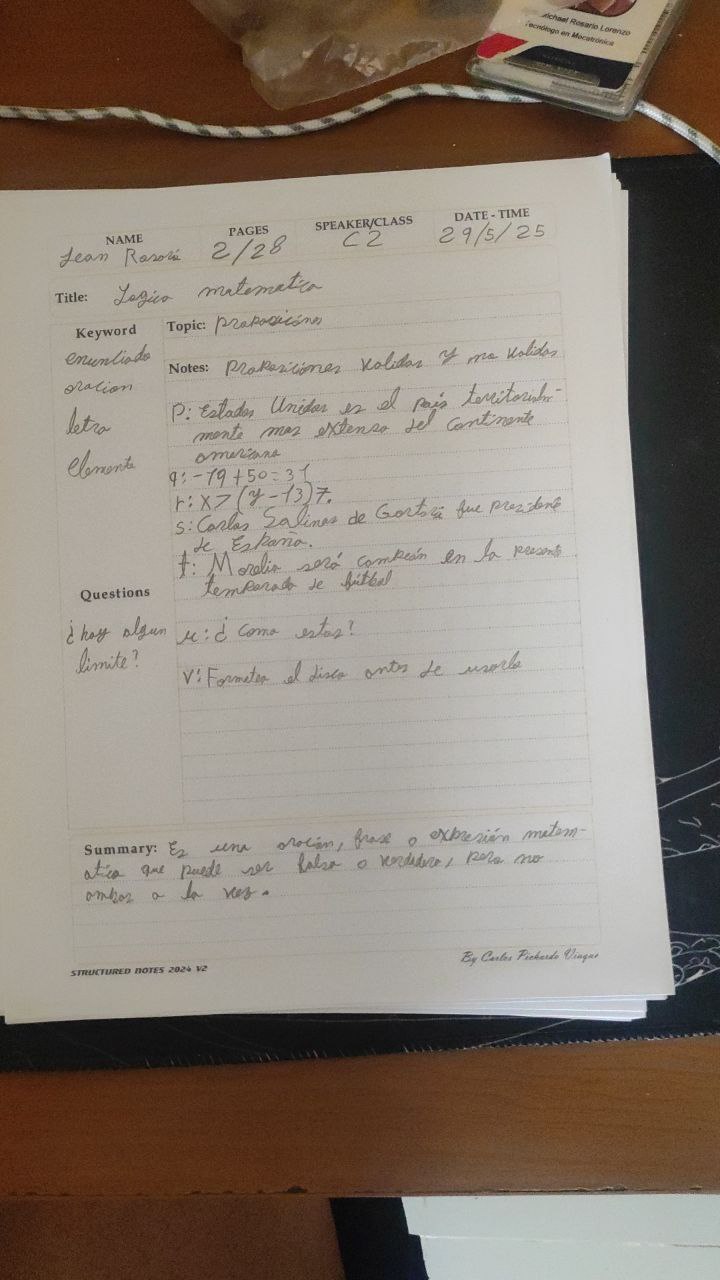 Michael Rosario Lorenzo
Tecnólogo en Mecatrónica
NAME PAGES SPEAKER/CLASS DATE - TIME
Jean 2/28 C2 29/5/25
Title: Logica matematica
Keyword Topic: Proposicións
enunciado Notes: Proposiciones validas y no validas
oracion
letra P: Estados Unidos es el país territorialm-
mente mas extenso del continente
elemento americano
q: -19+50=31
r: x>(y-13)7.
s: Carlos Salinas de Gortari fue presidente
de España.
t: Morelia será campeón en la presente
Questions temporada de fútbol
¿hay algun u: ¿Como estas?
limite?
v: Formatea el disco antes de usarlo
Summary: Es una oración, frase o expresión matem-
atica que puede ser falsa o verdadera, pero no
ambas a la vez.
STRUCTURED NOTES 2024 V2 By Carlos Pichardo Viuque